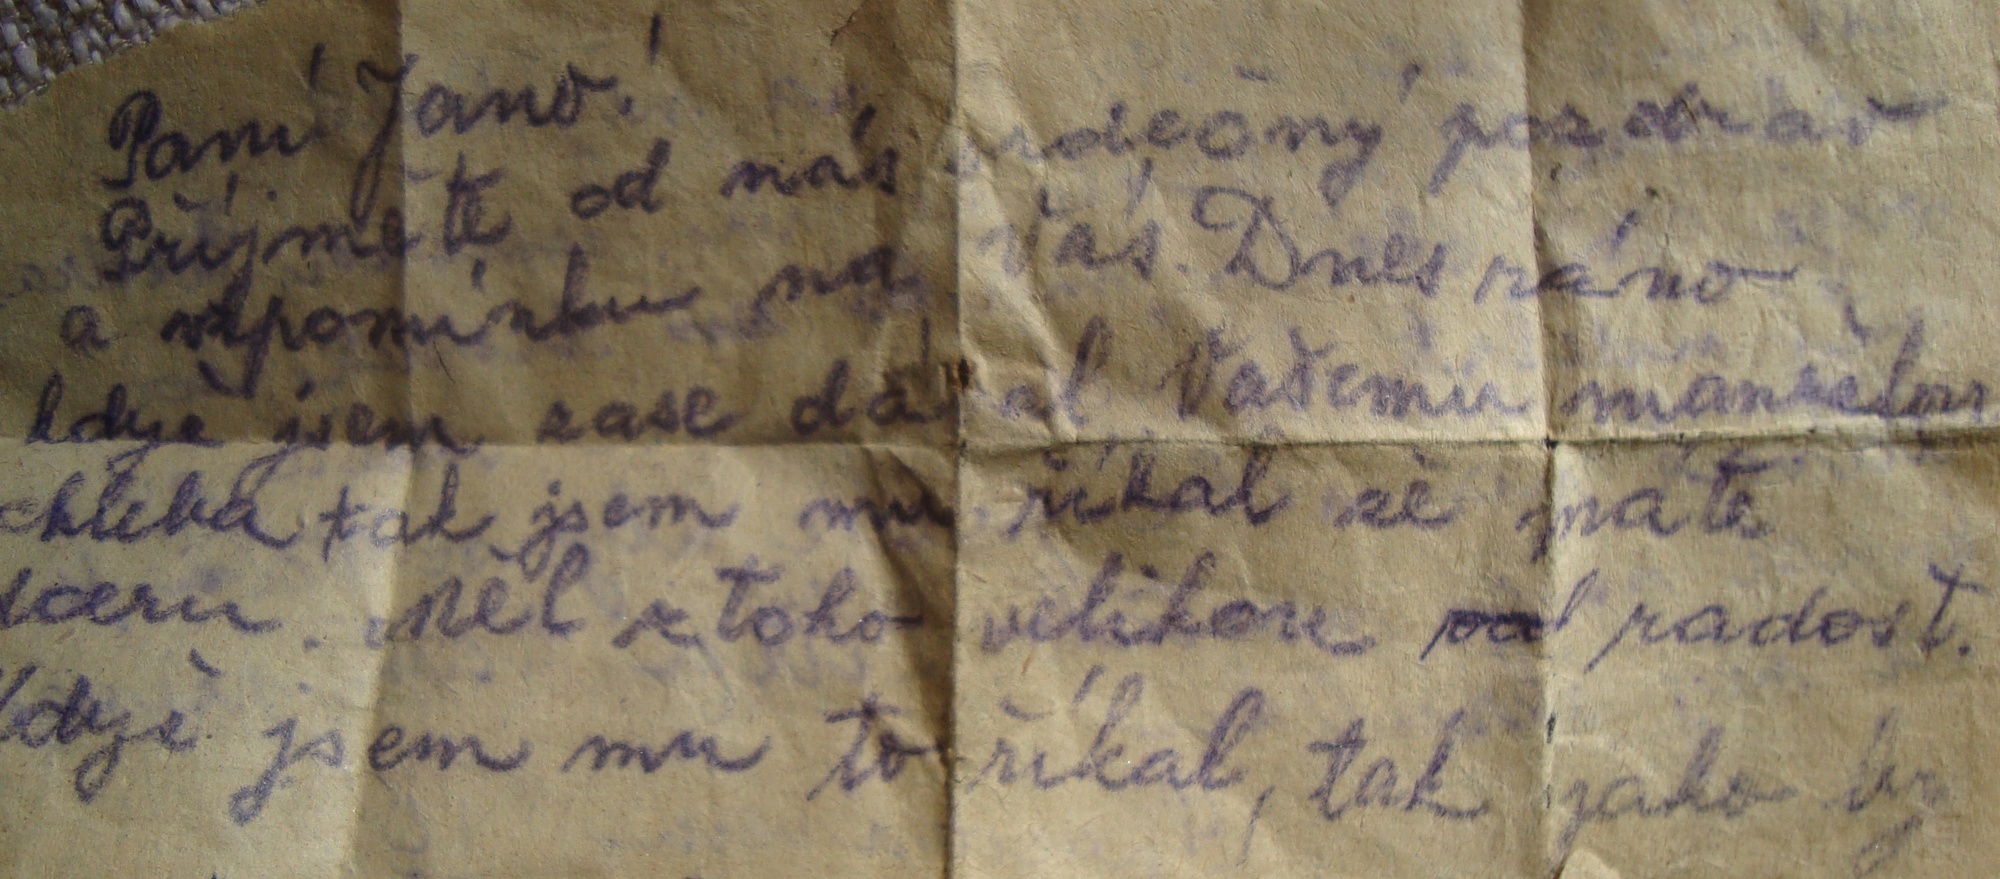 Paní Jano!
Přijměte od nás srdečný pozdrav
a vspomínku na Vás. Dnes ráno
když jsem zase dával Vašemu manželovi
chleba tak jsem mu říkal že máte
dceru. Měl z toho velikou rad radost.
Když jsem mu to říkal, tak jako by